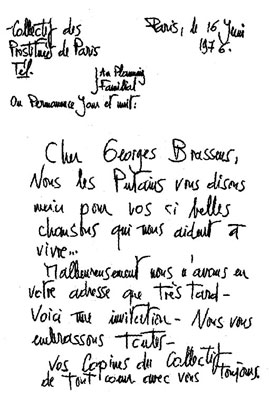 Collectif des
Prostituées de Paris
Paris, le 16 Juin
1976.
Tél.
} Au Planning
Familial
Ou Permanence Jour et nuit:
Cher Georges Brassens,
Nous les Putains vous disons
merci pour vos si belles
chansons qui nous aident à
vivre...
Malheureusement nous n'avons eu
votre adresse que très tard-
Voici une invitation- Nous vous
embrassons toutes-
Vos Copines du Collectif
de tout cœur avec vous toujours.